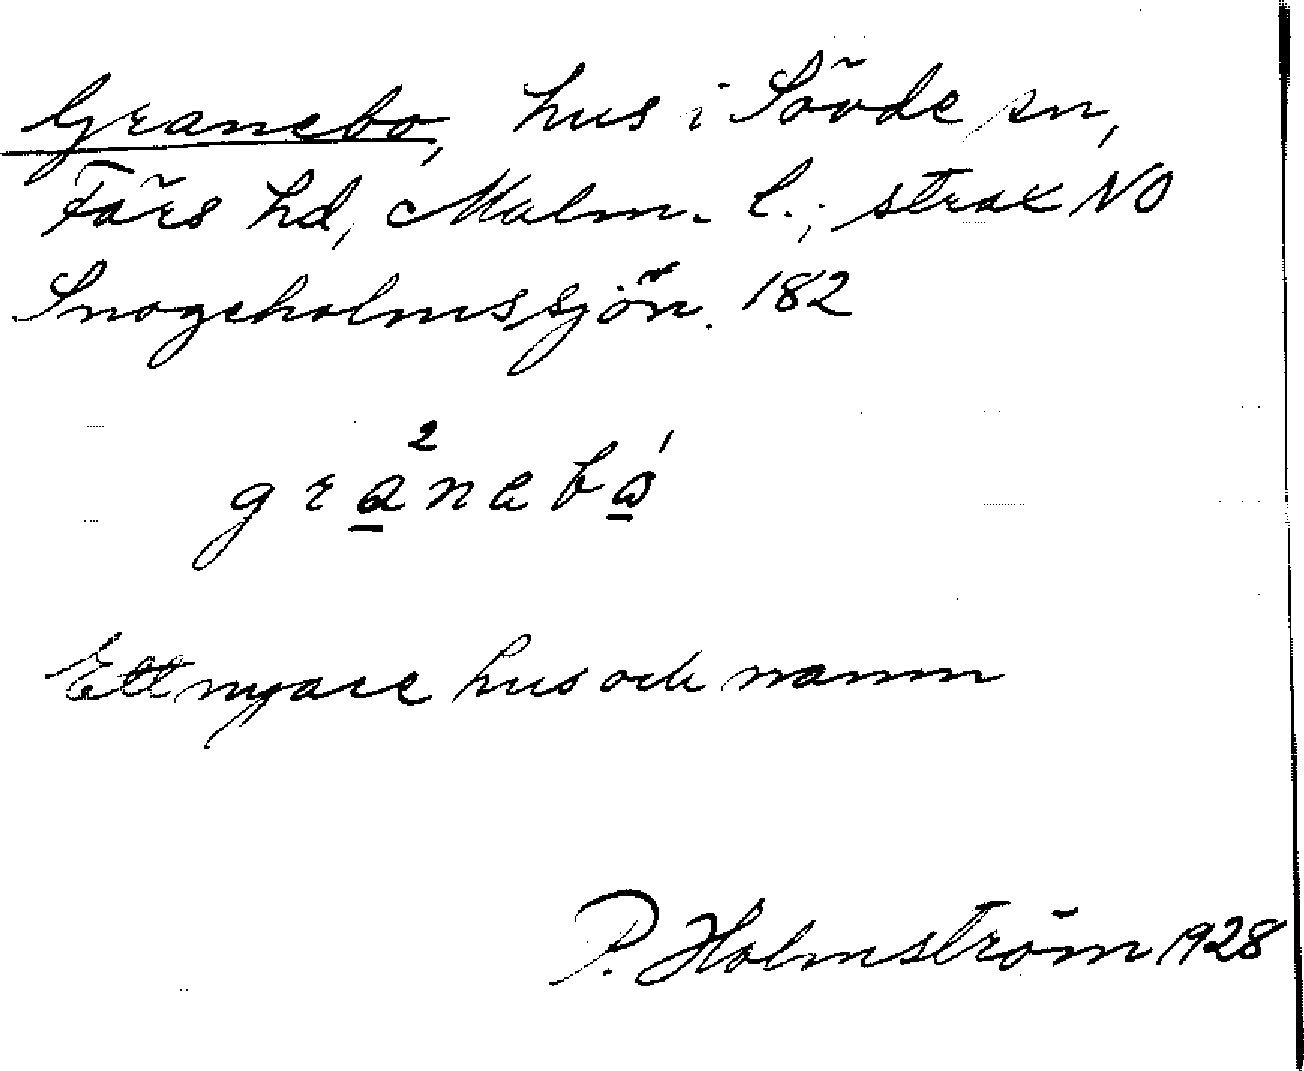 Granebo, hus i Sövde sn,
Färs hd, Malm. l.; strax NO
Snogeholmssjön. 182
2
granebó
Ett nyare hus och namn
P. Holmström 1928